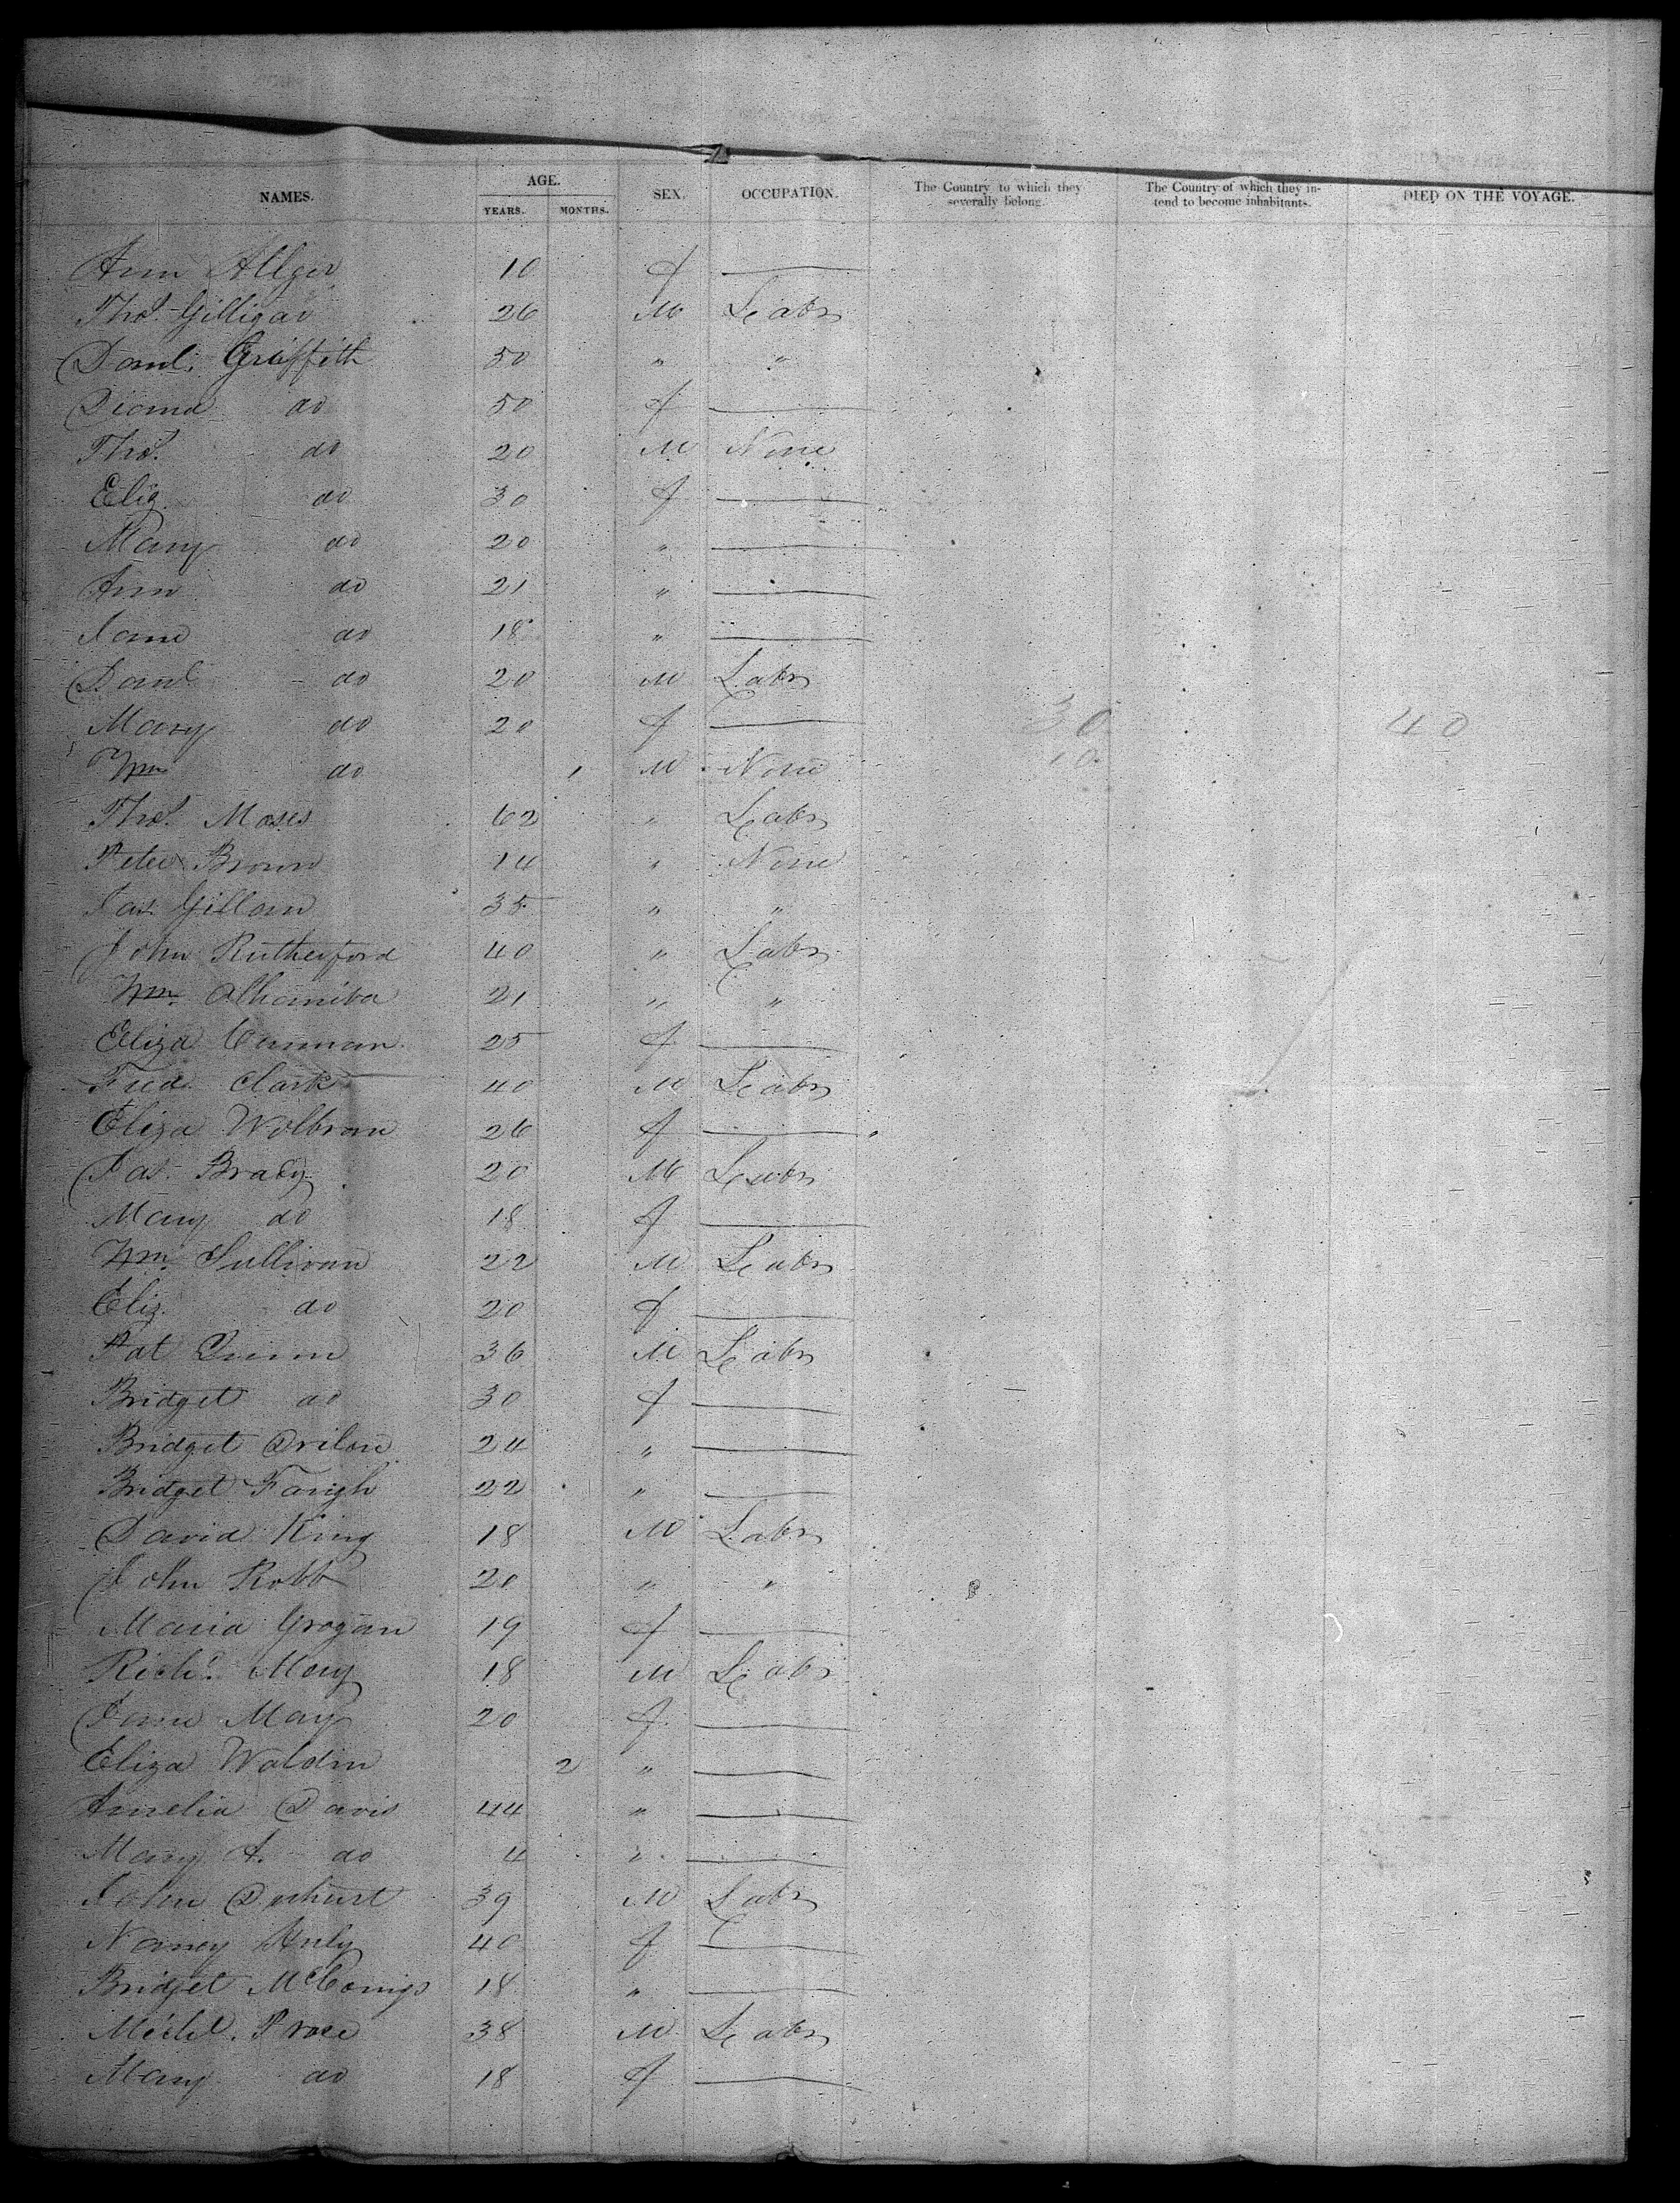 NAMES. AGE. YEARS. MONTHS. SEX. OCCUPATION. The Country to which they severally belong. The Country of which they intend to become inhabitants. DIED ON THE VOYAGE.
Ann Allger 10 f
Thos. Gilligan 26 M Labr
Danl. Griffith 50 " "
do 50 f
Thos. do 20 M None
Eliz. do 30 f
Mary do 20 "
Ann do 21 "
Jane do 18 "
Danl. do 20 M Labr
Mary do 20 f 30 40
Wm do 1 M None 10
Thos. Moses 62 " Labr
Peter Brown 14 " None
Jas. Gillam 35 " "
John Rutherford 40 " Labr
Wm. 21 " "
Eliza 25 f
Fred. Clark 40 M Labr
Eliza Wolbran 26 f
Jas. Brady 20 M Labr
Mary do 18 f
Wm. Sullivan 22 M Labr
Eliz. do 20 f
Pat Quinn 36 M Labr
Bridget do 30 f
Bridget 24 "
Bridget 22 "
David King 18 M Labr
John Robb 20 " "
Maria Grogan 19 f
Richd. May 18 M Labr
Jane May 20 f
Eliza Waldin 2 "
Amelia Davis 44 "
Mary A. do 4 "
John 39 M Labr
Nancy 40 f
Bridget 18 "
Michl. 38 M Labr
Mary do 18 f